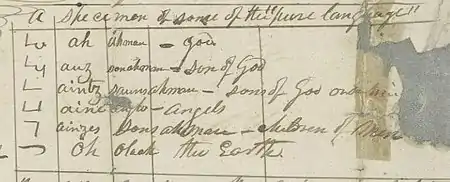 a Specimen of some of the "pure language"
ah ahman - god
auz sonahman - son of God
aintz saunsahman - sons of God
aine anglo - angels
ainzes sonsahman - children of Men
oh olaeh the Earth